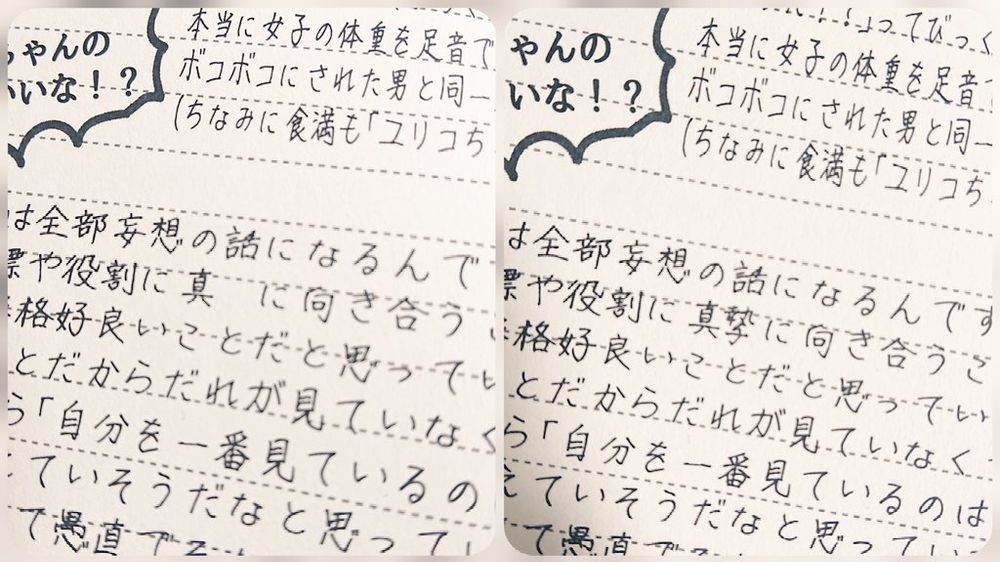 ゃんの
いいな！？
本当に女子の体重を足音で
ボコボコにされた男と同一
(ちなみに食満も「ユリコち
は全部妄想の話になるんで
標や役割に真 に向き合う
格好良いことだと思ってい
とだからだれが見ていなく
ら「自分を一番見ているの
ていそうだなと思ってい
て愚直で
ゃんの
いな！？
ってびっく
本当に女子の体重を足音
ボコボコにされた男と同一
(ちなみに食満も「ユリコち
は全部妄想の話になるんです
標や役割に真摯に向き合うこ
格好良いことだと思ってい
とだからだれが見ていなく
ら「自分を一番見ているのは
えていそうだなと思ってい
て愚直で